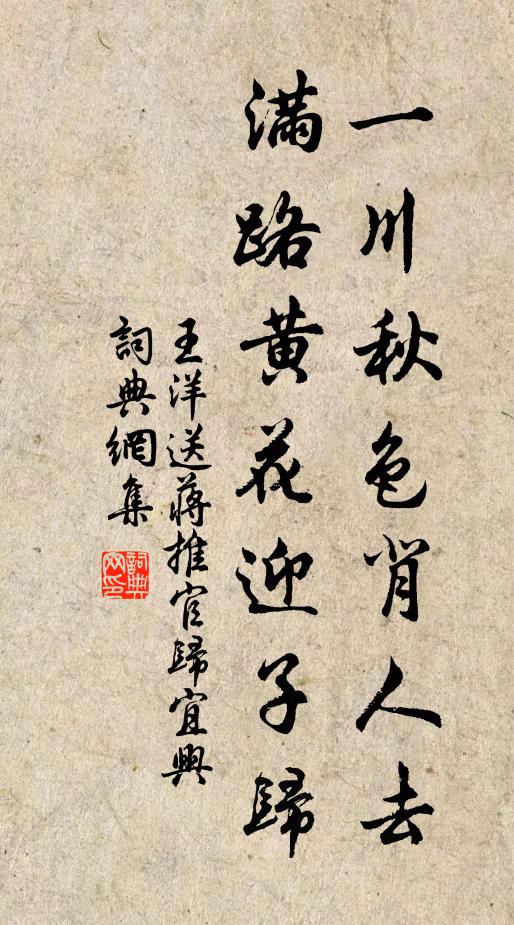 一川秋色背人去
滿路黄花迎子歸
王洋送蔣推官歸宜興
詞典網集
詞典
网印